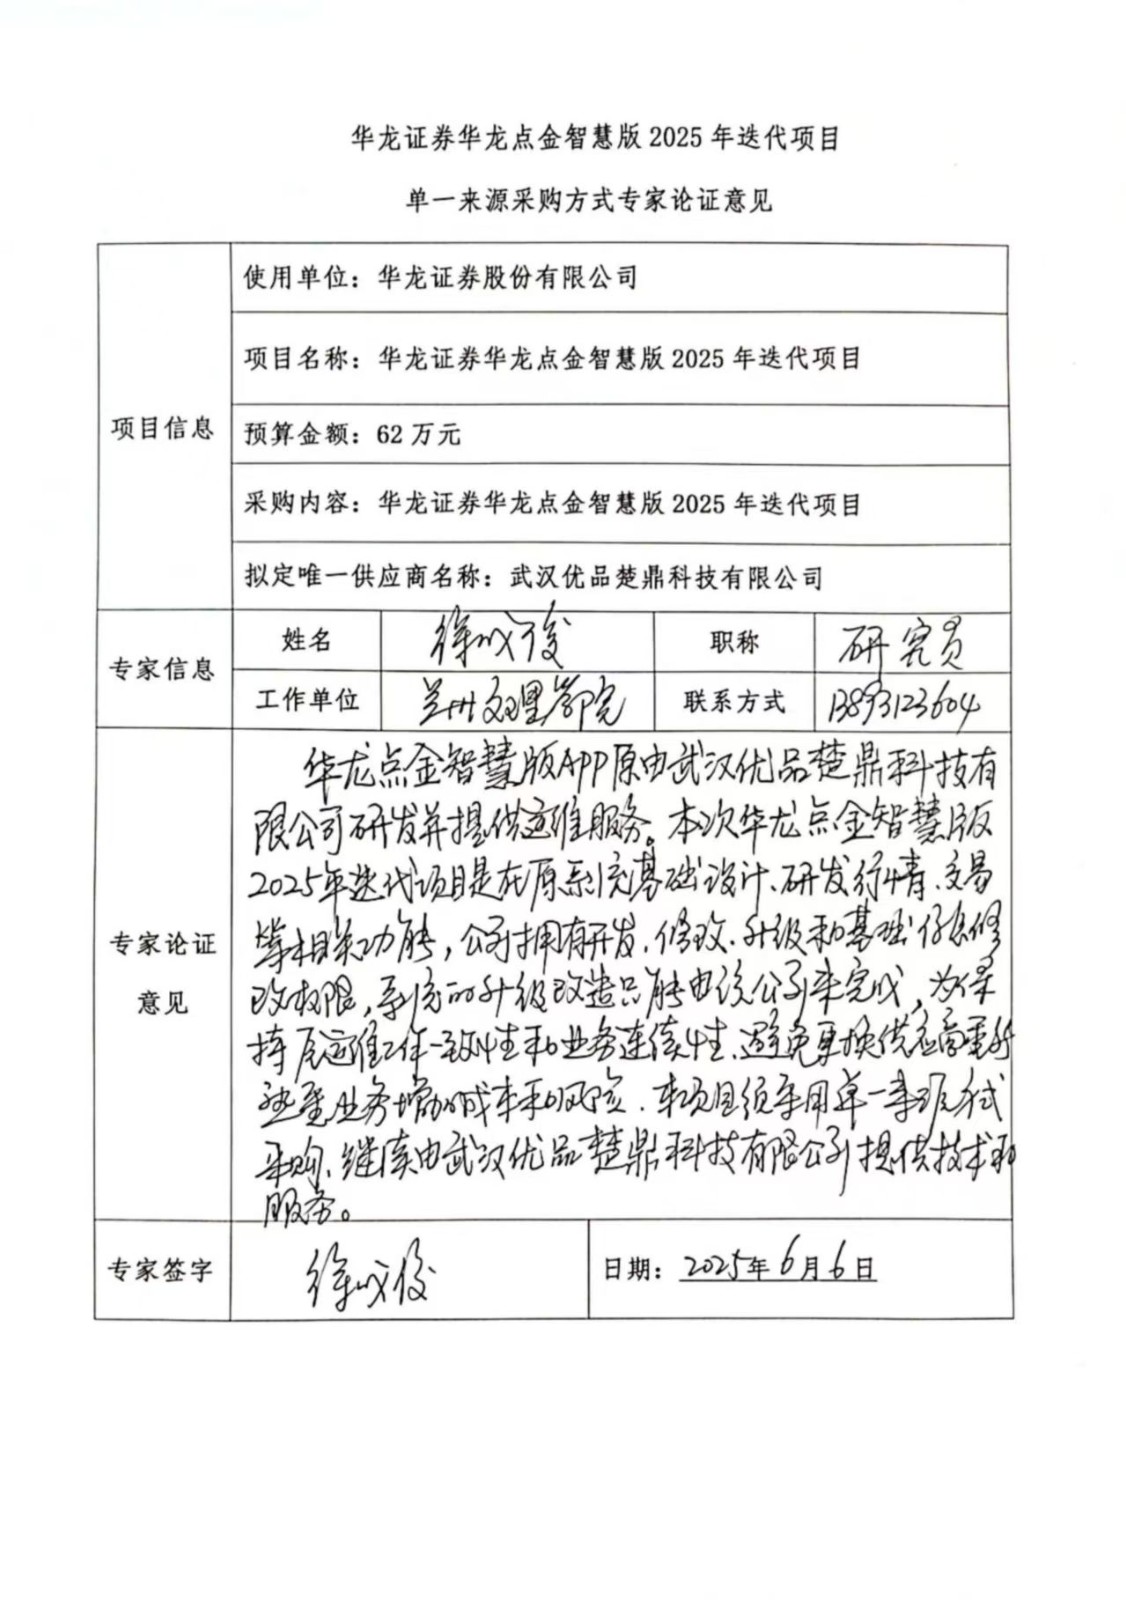 华龙证券华龙点金智慧版 2025 年迭代项目
单一来源采购方式专家论证意见
项目信息
使用单位：华龙证券股份有限公司
项目名称：华龙证券华龙点金智慧版 2025 年迭代项目
预算金额：62 万元
采购内容：华龙证券华龙点金智慧版 2025 年迭代项目
拟定唯一供应商名称：武汉优品楚鼎科技有限公司
专家信息
姓名 徐成俊 职称 研究员
工作单位 兰州文理学院 联系方式 13893123604
专家论证
意见
华龙点金智慧版APP原由武汉优品楚鼎科技有
限公司研发并提供运维服务。本次华龙点金智慧版
2025年迭代项目是在原系统基础设计、研发行情、交易
等相关功能，公司拥有开发、修改、升级和基础信息修
改权限，系统的升级改造只能由该公司来完成，为保
持后运维工作一致性和业务连续性、避免更换供应商重新
熟悉业务增加的成本和风险，本项目须采用单一来源方式
采购、继续由武汉优品楚鼎科技有限公司提供技术和
服务。
专家签字 徐成俊 日期：2025年6月6日